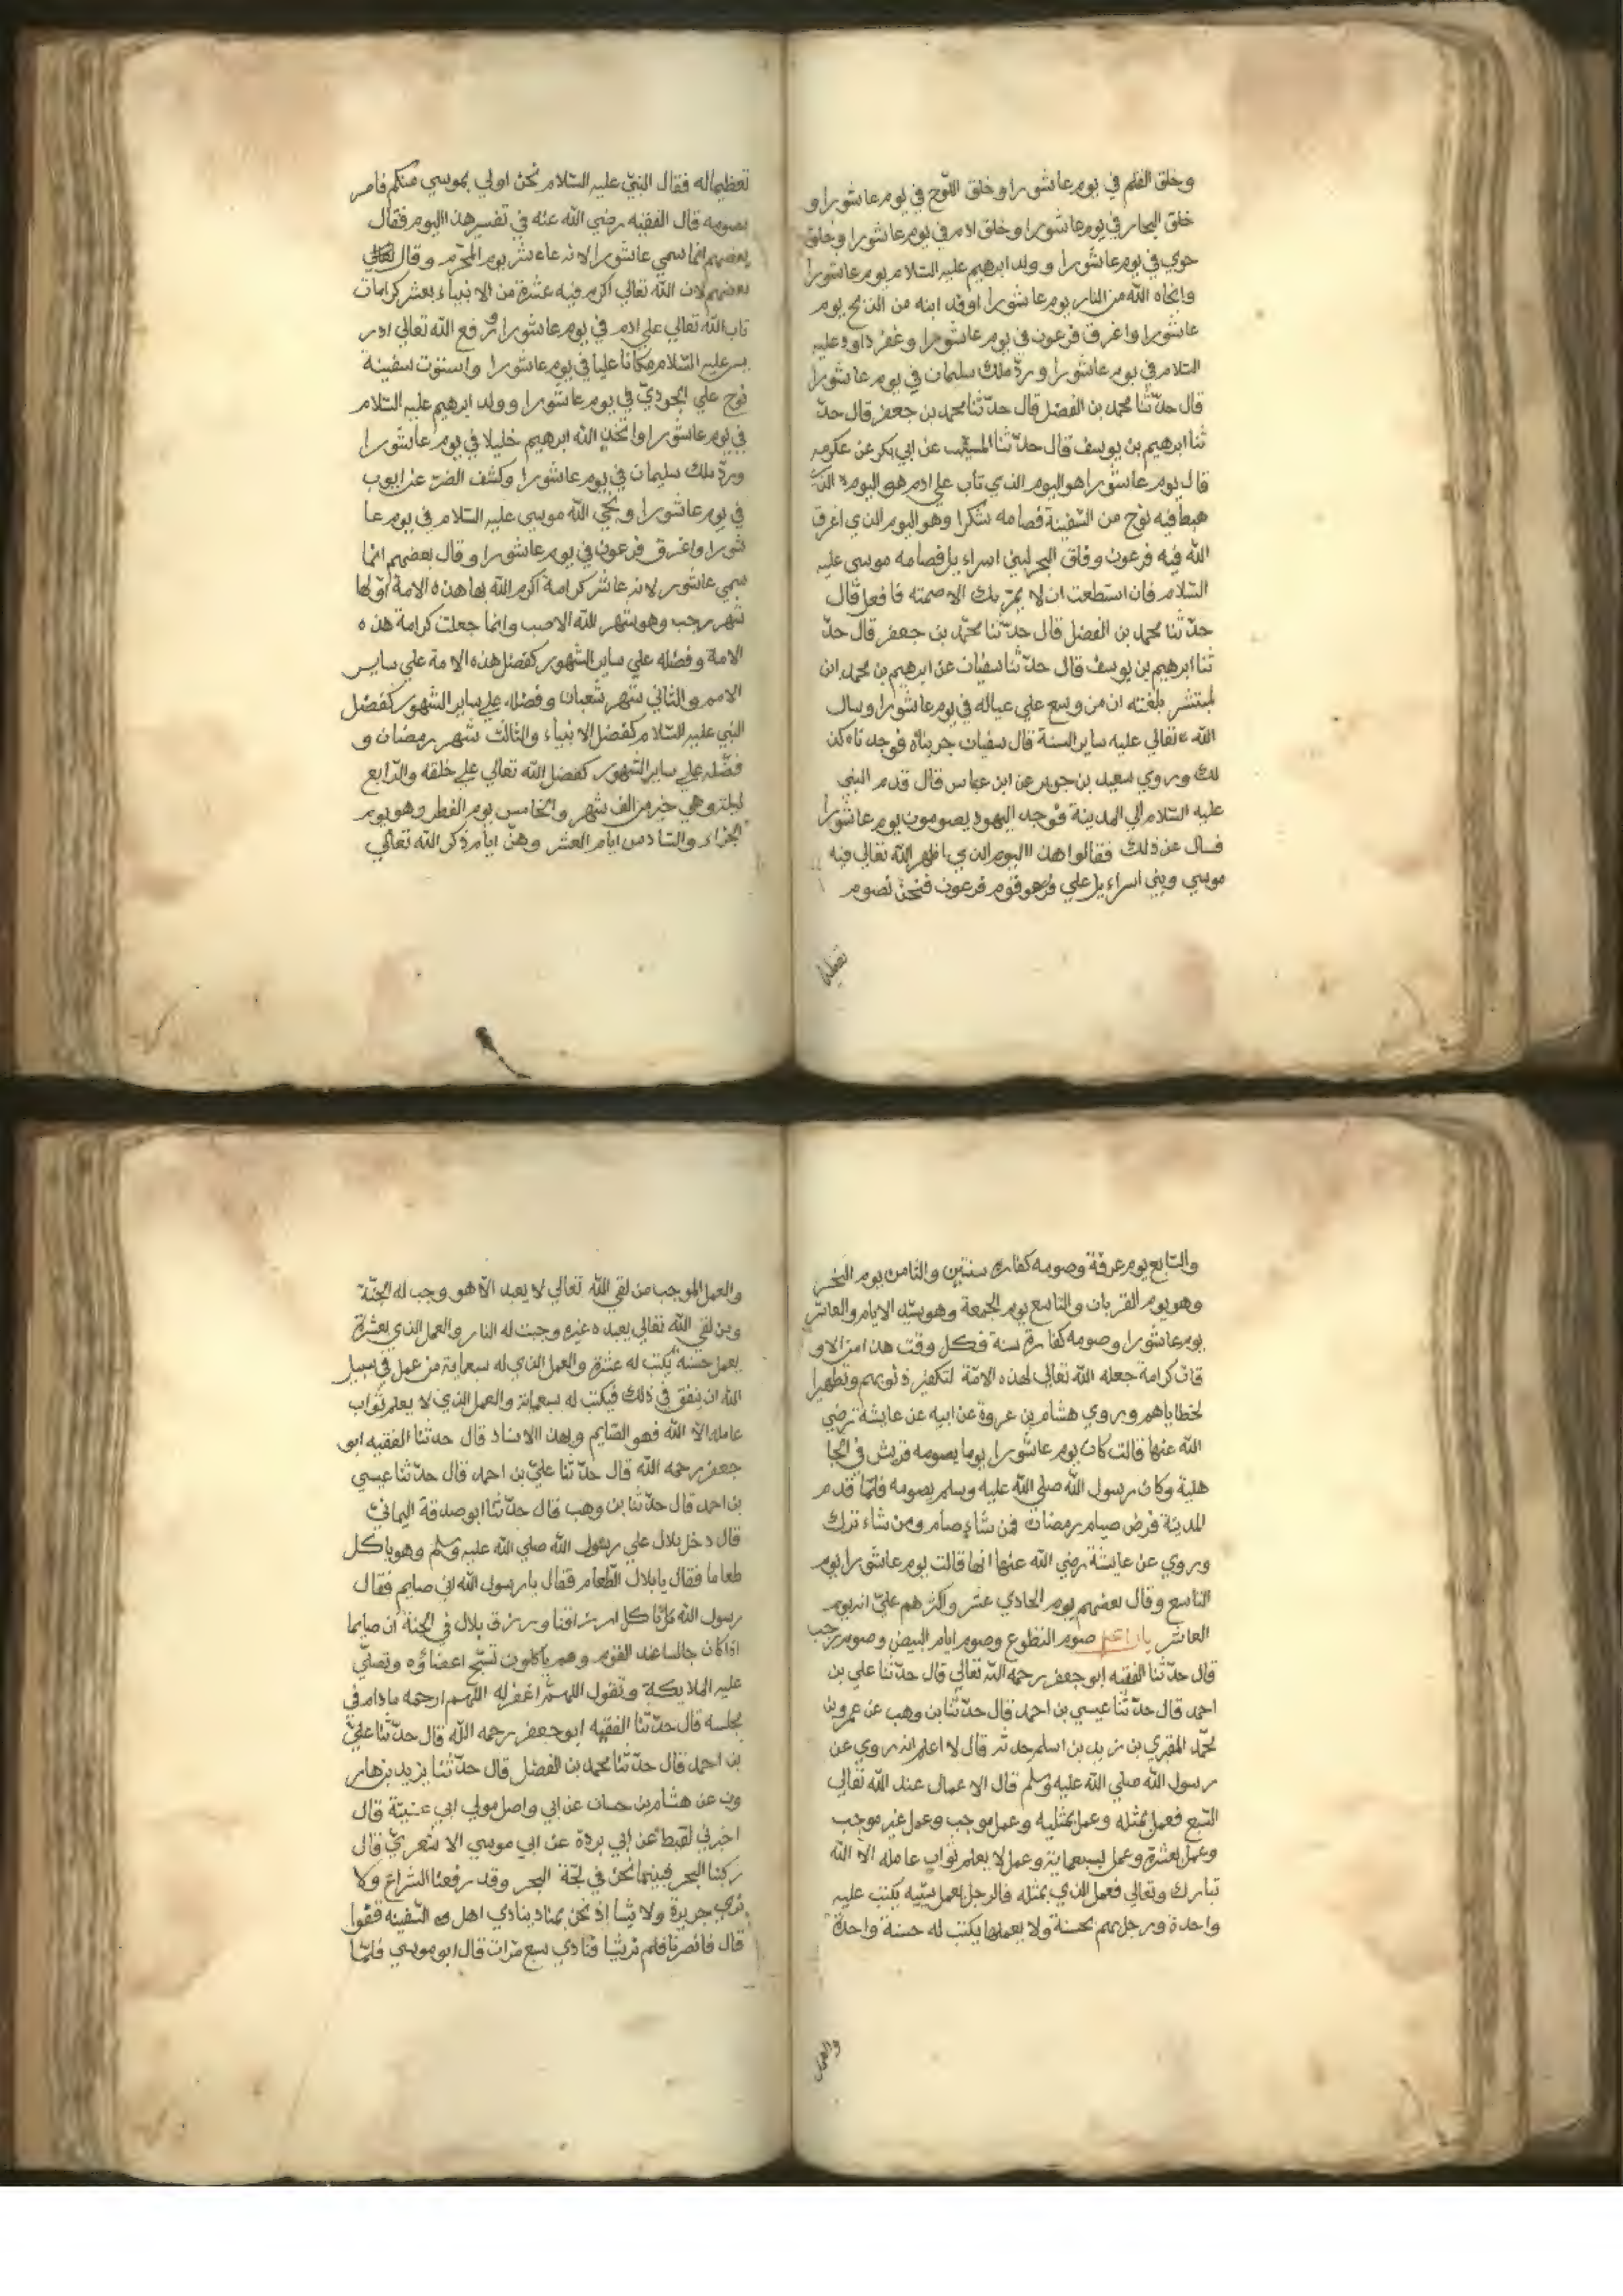 وخلق القلم في يوم عاشورا وخلق اللوح في يوم عاشورا و
خلق البحار في يوم عاشورا وخلق ادم في يوم عاشورا وخلق
حوي في يوم عاشورا وولد ابرهيم عليه السلام يوم عاشورا
وانجاه الله من النار يوم عاشورا وفد ابنه من الذبح يوم
عاشورا واغرق فرعون في يوم عاشورا وغفر داود عليه
السلام في يوم عاشورا ورد ملك سليمان في يوم عاشورا
قال حدثنا محمد بن الفضل قال حدثنا محمد بن جعفر قال حد
ثنا ابرهيم بن يوسف قال حدثنا المسيب عن ابي بكر عن عكرمه
قال يوم عاشورا هو اليوم الذي تاب علي ادم هو اليوم الذي
هبط فيه نوح من السفينة فصامه شكرا وهو اليوم الذي اغرق
الله فيه فرعون وفلق البحر لبني اسراءيل فصامه موسي عليه
السلام فان استطعت ان لا يمر بك الا صمته فافعل قال
حدثنا محمد بن الفضل قال حدثنا محمد بن جعفر قال حد
ثنا ابرهيم بن يوسف قال حدثنا سفيان عن ابرهيم بن محمد ابن
المنتشر بلغته ان من وسع علي عياله في يوم عاشورا وسال
الله تعالي عليه ساير السنة قال سفيان جربناه فوجدناه كذ
لك وروي سعيد بن جوبر عن ابن عباس قال قدم النبي
عليه السلام الي المدينة فوجد اليهود يصومون يوم عاشورا
فسال عن ذلك فقالوا هذا اليوم الذي اظهر الله تعالي فيه
موسي وبني اسراءيل علي قوم فرعون فنحن نصوم
تعظيما
تعظيما له فقال النبي عليه السلام نحن اولي بموسي منكم فامر
بصومه قال الفقيه رضي الله عنه في تفسير هذا اليوم فقال
بعضهم انما سمي عاشورا لانه عاشر يوم المحرم وقال
بعضهم لان الله تعالي اكرم فيه عشرة من الانبياء بعشر كرامات
تاب الله تعالي علي ادم في يوم عاشورا ورفع الله تعالي ادر
يس عليه السلام مكانا عليا في يوم عاشورا واستوت سفينة
نوح علي الجودي في يوم عاشورا وولد ابرهيم عليه السلام
في يوم عاشورا واتخذ الله ابرهيم خليلا في يوم عاشورا
ورد ملك سليمان في يوم عاشورا وكشف الضر عن ايوب
في يوم عاشورا ونجي الله موسي عليه السلام في يوم عا
شورا واغرق فرعون في يوم عاشورا وقال بعضهم انما
سمي عاشور لانه عاشر كرامة اكرم الله بها هذه الامة اولها
شهر رجب وهو شهر الله الاصب وانما جعلت كرامة هذه
الامة وفضله علي ساير الشهور كفضل هذه الامة علي ساير
الامم والثاني شهر شعبان وفضله علي ساير الشهور كفضل
النبي عليه السلام كفضل الانبياء والثالث شهر رمضان و
فضله علي ساير الشهور كفضل الله تعالي علي خلقه والرابع
ليلة وهي خير من الف شهر والخامس يوم الفطر وهو يوم
الجزاء والسادس ايام العشر وهن ايام ذكر الله تعالي
والسابع يوم عرفة وصومه كفارة سنتين والثامن يوم النحر
وهو يوم القربان والتاسع يوم الجمعة وهو سيد الايام والعاشر
يوم عاشورا وصومه كفارة سنة فكل وقت هذا من الاو
قات كرامة جعله الله تعالي لهذه الامة لتكفير ذنوبهم وتطهيرا
لخطاياهم وروي هشام بن عروة عن ابيه عن عايشة رضي
الله عنها قالت كان يوم عاشورا يوما يصومه قريش في الجا
هلية وكان رسول الله صلي الله عليه وسلم يصومه فلما قدم
المدينة فرض صيام رمضان فمن شاء صام ومن شاء ترك
وروي عن عايشة رضي الله عنها انها قالت يوم عاشورا يوم
التاسع وقال بعضهم يوم الحادي عشر واكثرهم علي انه يوم
العاشر صوم التطوع وصوم ايام البيض وصوم رجب
قال حدثنا الفقيه ابو جعفر رحمه الله تعالي قال حدثنا علي بن
احمد قال حدثنا عيسي بن احمد قال حدثنا بن وهب عن عمرو بن
محمد المقبري بن زيد بن اسلم حدثه قال لا اعلم انه روي عن
رسول الله صلي الله عليه وسلم قال الاعمال عند الله تعالي
السبع فعمل بمثله وعمل بمثليه وعمل موجب وعمل غير موجب
وعمل بعشرة وعمل بسبعماية وعمل لا يعلم ثواب عامله الا الله
تبارك وتعالي فعمل الذي بمثله فالرجل يعمل سيية يكتب عليه
واحدة ورجل يهم بحسنة ولا يعملها يكتب له حسنة واحدة
والعمل
والعمل الموجب من لقي الله تعالي لا يعبد الا هو وجب له الجنة
ومن لقي الله تعالي يعبده غيره وجبت له النار والعمل الذي بعشرة
يعمل حسنة يكتب له عشرة والعمل الذي له سبعماية من عمل في سبيل
الله ان ينفق في ذلك فيكتب له سبعماية والعمل الذي لا يعلم ثواب
عامله الا الله فهو الصايم وبهذا الاسناد قال حدثنا الفقيه ابو
جعفر رحمه الله قال حدثنا علي بن احمد قال حدثنا عيسي
بن احمد قال حدثنا بن وهب قال حدثنا ابو صدقة اليماني
قال دخل بلال علي رسول الله صلي الله عليه وسلم وهو ياكل
طعاما فقال يا بلال الطعام فقال يا رسول الله اني صايم فقال
رسول الله ناكل ارزاقنا ورزق بلال في الجنة ان صايما
اذا كان جالسا عند القوم وهم ياكلون تسبح اعضاؤه وتصلي
عليه الملايكة وتقول اللهم اغفر له اللهم ارحمه مادام في
مجلسه قال حدثنا الفقيه ابو جعفر رحمه الله قال حدثنا علي
بن احمد قال حدثنا محمد بن الفضل قال حدثنا يزيد بن هار
ون عن هشام بن حسان عن ابي واصل مولي ابي عنيية قال
اخبرني لقيط عن ابي بردة عن ابي موسي الاشعري قال
ركبنا البحر فبينما نحن في لجة البحر وقد رفعنا الشراع ولا
نري جزيرة ولا شيا اذ نحن بمناد ينادي اهل السفينه قفوا
قال فانصرنا فلم نر شيا فنادي سبع مرات قال ابو موسي فلما